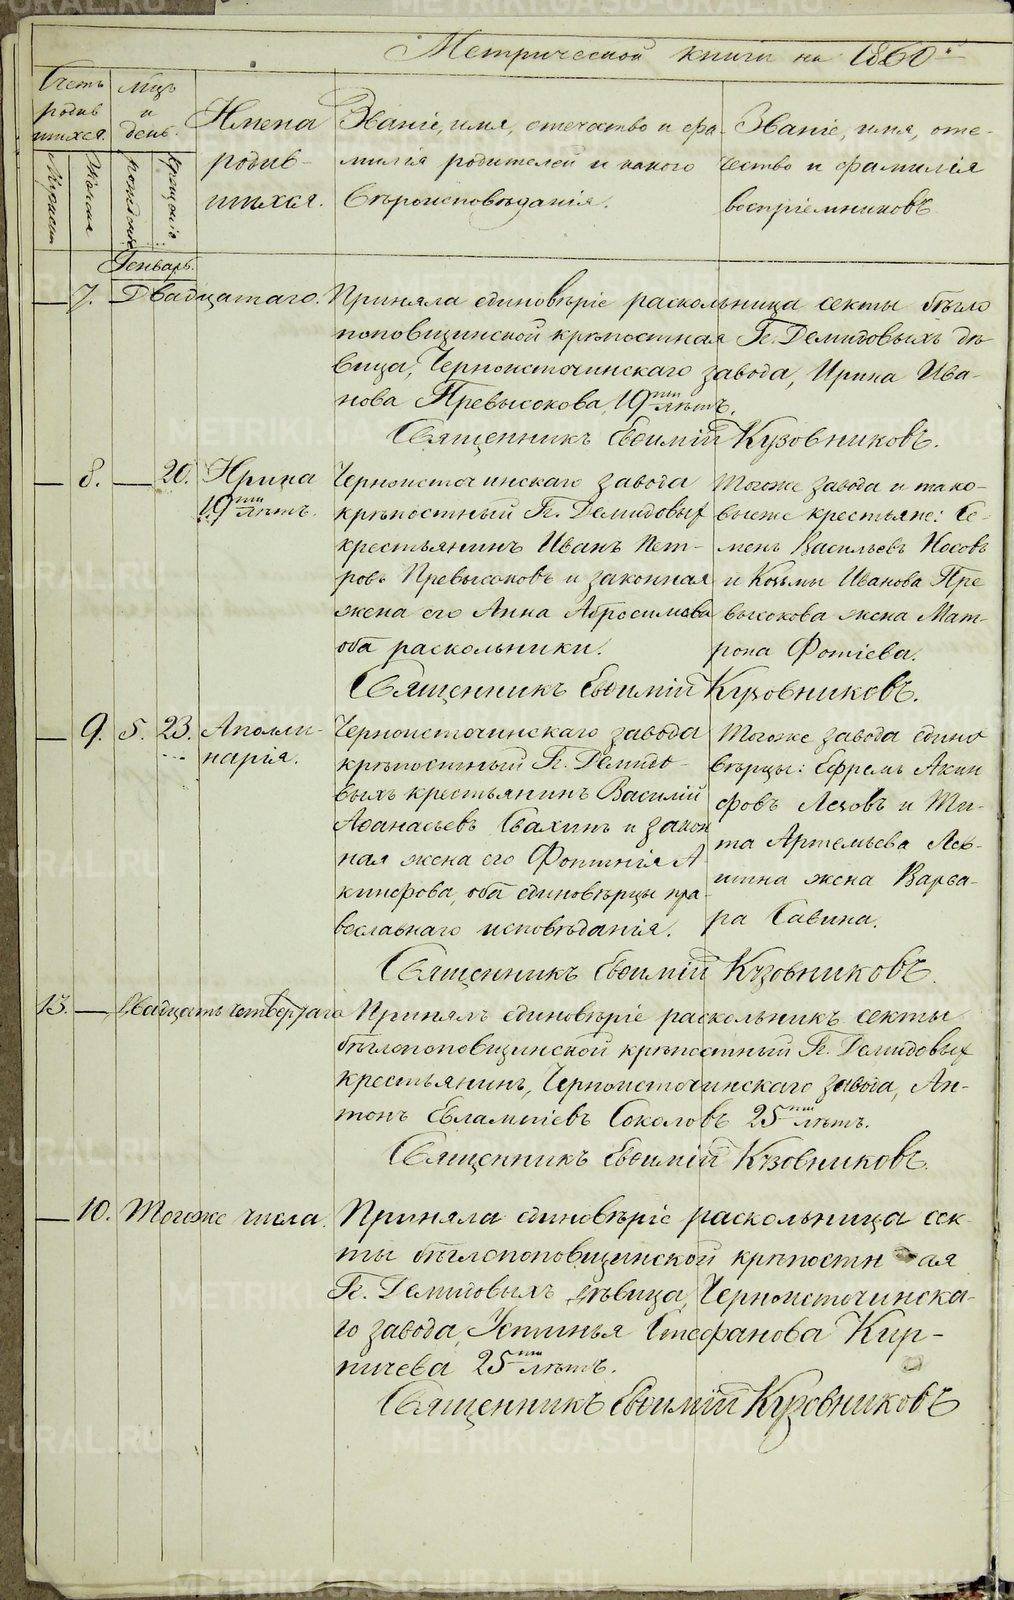 METRIKI.GASO-URAL.RU
Метрической книги на 1860й
Счетъ родив шихся.
Мужеска
Женска
Мцъ и день.
рожденія
крещенія
Имена родив- шихся.
Званіе, имя, отечество и фа-
милія родителей и какого
вѣроисповѣданія.
Званіе, имя, оте-
чество и фамилія
воспріемниковъ
Генварь.
— 7. Двадцатаго. Приняла единовѣріе раскольница секты бѣгло
поповщинской крѣпостная Гг. Демидовыхъ дѣ-
вица, Черноисточинскаго завода, Ирина Ива-
нова Превысокова, 19ти лѣтъ.
Священникъ Евѳимій Кузовниковъ.
— 8. — 20. Ирина
19ти лѣтъ.
Черноисточинскаго завода
крѣпостный Гг. Демидовыхъ
крестьянинъ Иванъ Пет-
ровъ Превысоковъ и законная
жена его Анна Абросимова
оба раскольники.
Тогоже завода и тако-
выеже крестьяне: Се-
менъ Васильевъ Носовъ
и Козьмы Иванова Пре
высокова жена Мат-
рона Фотіева.
Священникъ Евѳимій Кузовниковъ.
— 9. 5. 23. Аполли-
нарія.
Черноисточинскаго завода
крѣпостный Гг. Демидо-
выхъ крестьянинъ Василій
Аѳанасьевъ Свахинъ и закон
ная жена его Фотинія А
кинфова, оба единовѣрцы пра-
вославнаго исповѣданія.
Тогоже завода едино
вѣрцы: Ефремъ Акин
фовъ Лезовъ и Ти-
та Артемьева Лев-
шина жена Варва-
ра Савина.
Священникъ Евѳимій Кузовниковъ.
13. — Двадцать четвертаго Принялъ единовѣріе раскольникъ секты
бѣглопоповщинской крѣпостный Гг. Демидовыхъ
крестьянинъ, Черноисточинскаго завода, Ан-
тонъ Евлампіевъ Соколовъ 25ти лѣтъ.
Священникъ Евѳимій Кузовниковъ.
— 10. Тогоже числа. Приняла единовѣріе раскольница сек-
ты бѣглопоповщинской крѣпостн ая
Гг. Демидовыхъ дѣвица, Черноисточинска-
го завода, Устинья Стефанова Кир-
пичева 25ти лѣтъ.
Священникъ Евѳимій Кузовниковъ